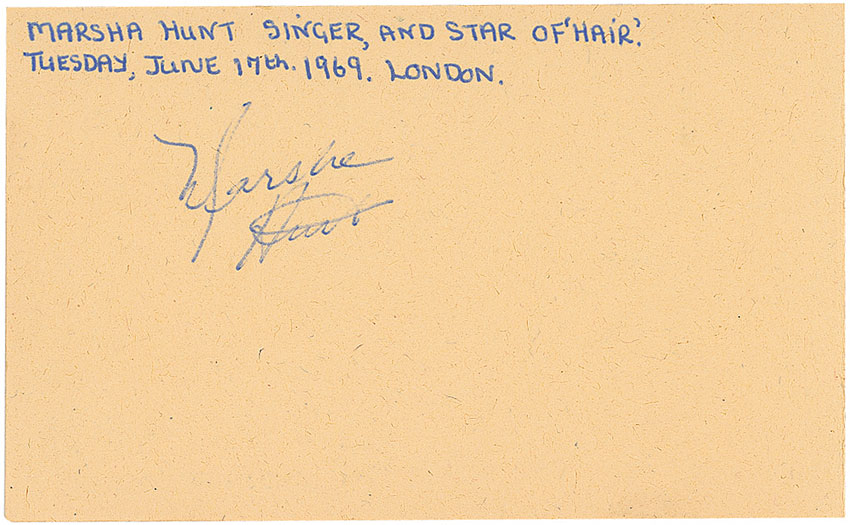 MARSHA HUNT SINGER, AND STAR OF 'HAIR'.
TUESDAY, JUNE 17th. 1969. LONDON.
Marsha
Hunt